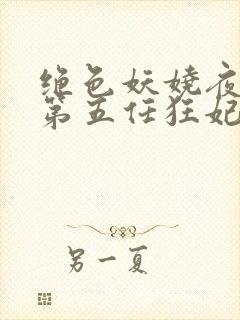 绝色妖娆夜
第五任狂妃
另一夏